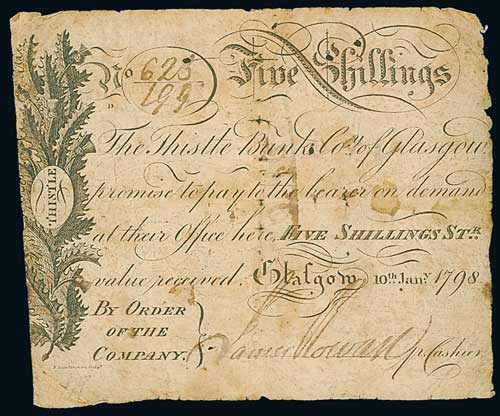 No 625/199 Five Shillings
The Thistle Bank Coy. of Glasgow
promise to pay to the bearer on demand
at their Office here, FIVE SHILLINGS STR.
value received. Glasgow 10th. Jany. 1798
BY ORDER
OF THE
COMPANY,
James p. Cashier
THISTLE